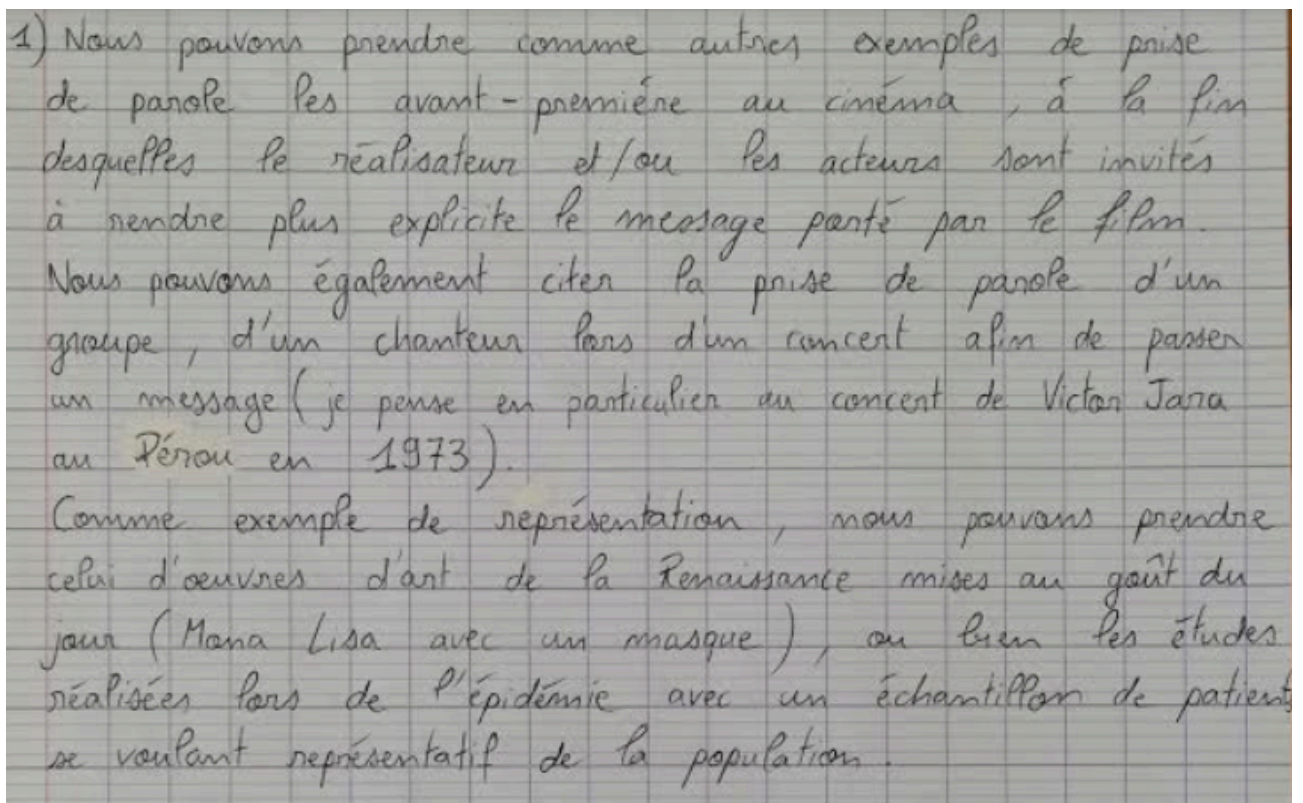 1) Nous pouvons prendre comme autres exemples de prise
de parole les avant-première au cinéma, à la fin
desquelles le réalisateur et/ou les acteurs sont invités
à rendre plus explicite le message porté par le film.
Nous pouvons également citer la prise de parole d'un
groupe, d'un chanteur lors d'un concert afin de passer
un message (je pense en particulier au concert de Victor Jara
au Pérou en 1973).
Comme exemple de représentation, nous pouvons prendre
celui d'oeuvres d'art de la Renaissance mises au goût du
jour (Mona Lisa avec un masque), ou bien les études
réalisées lors de l'épidémie avec un échantillon de patients
se voulant représentatif de la population.